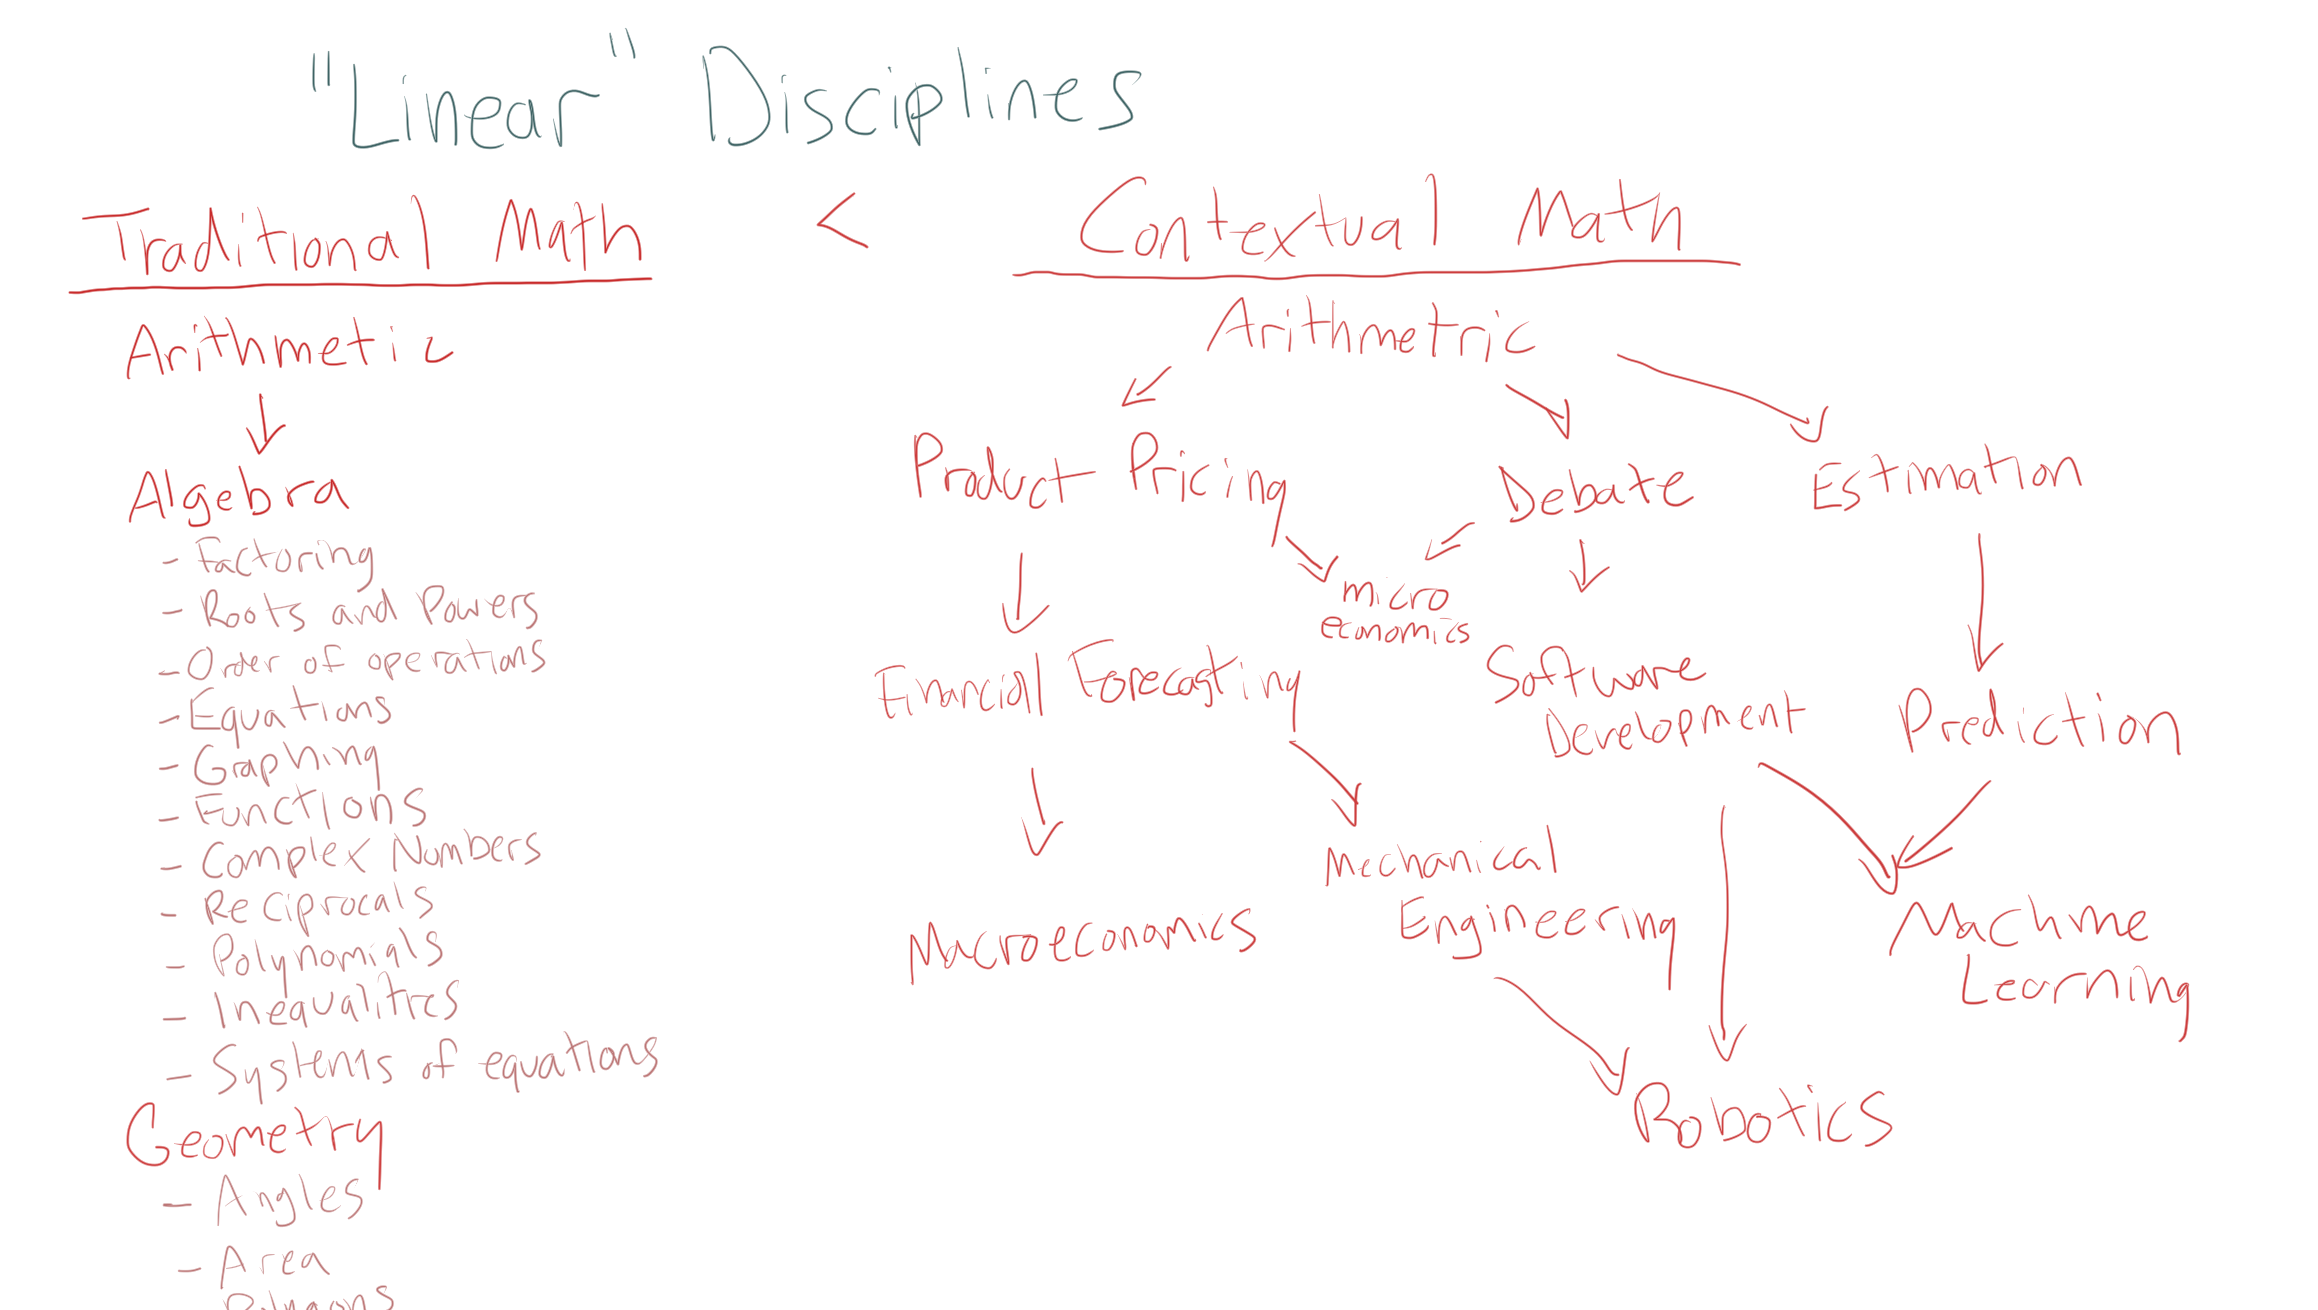 "Linear" Disciplines
Traditional Math < Contextual Math
Arithmetic
Algebra
- Factoring
- Roots and Powers
- Order of operations
- Equations
- Graphing
- Functions
- Complex Numbers
- Reciprocals
- Polynomials
- Inequalities
- Systems of equations
Geometry
- Angles
- Area
Polygons
Arithmetric
Product Pricing
Debate
Estimation
micro
economics
Financial Forecasting
Software
Development
Prediction
Macroeconomics
Mechanical
Engineering
Machine
Learning
Robotics